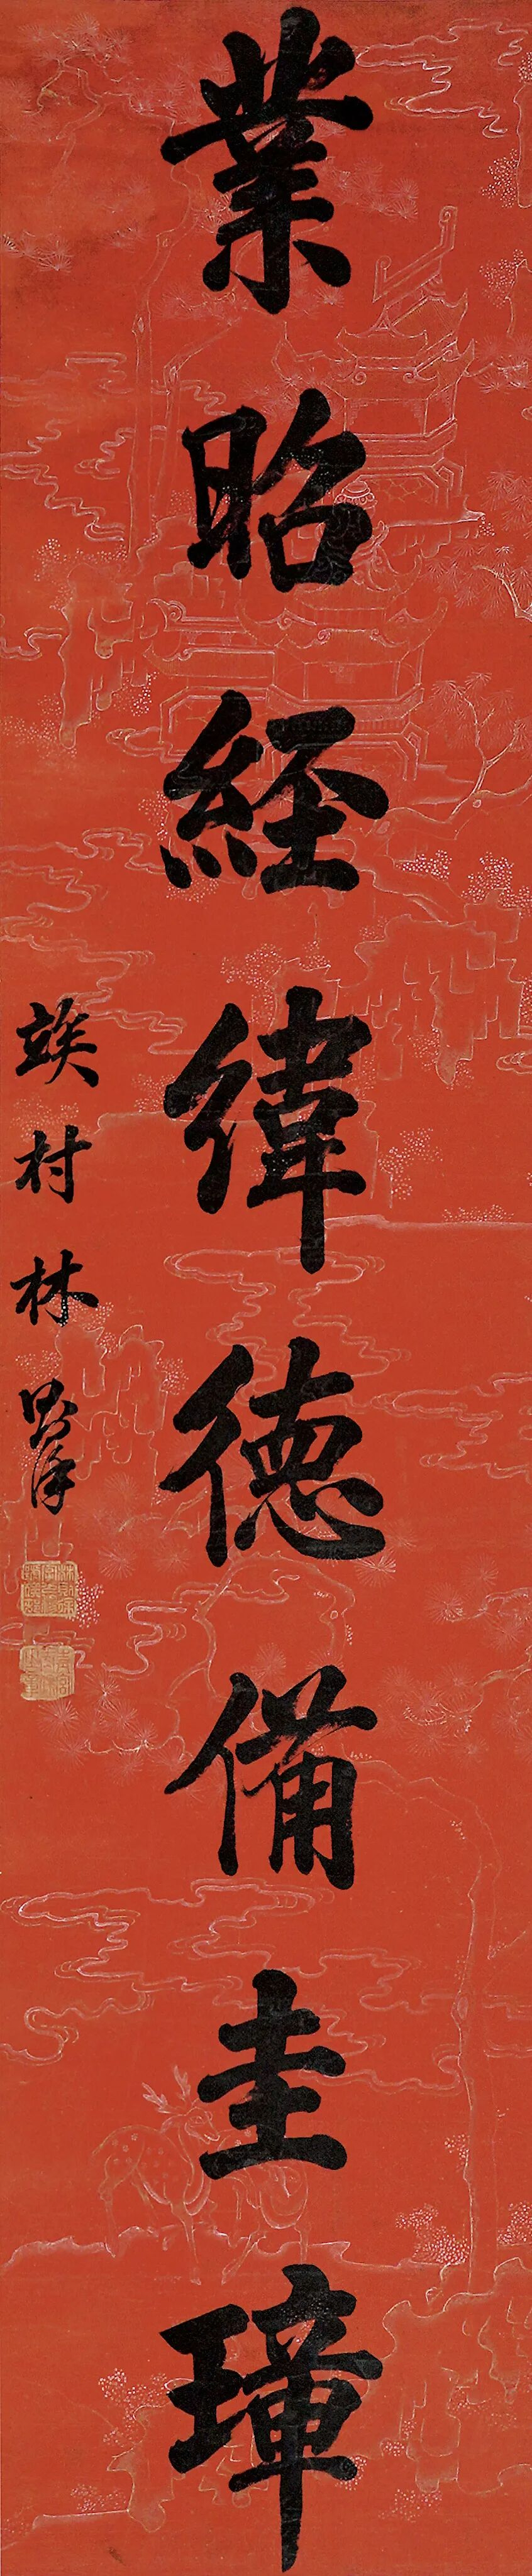 業昭經緯德備圭璋
竢村林則徐